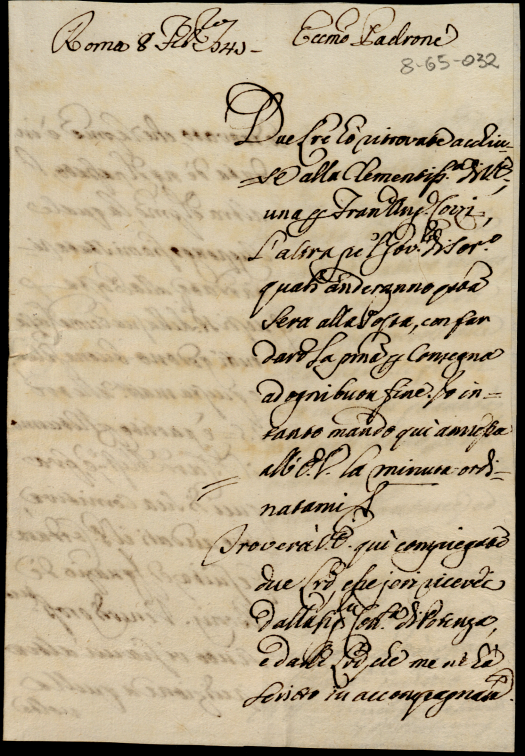 Roma 8 Feb.º 1741 - Eccmo Padrone
8-65-032
Due Lre hò ritrovate acchiu-
=se alla Clementiss.ma di V.E.,
una p
L'altra pe'l Gov.
quali anderanno questa
sera alla Posta, con far
dare la p̄ma p Consegna
ad ogni buon fine. Io in=
tanto mando qui annessa
all' la minuta ordi=
natami
Troverà V.E. qui compiegate
due Lre, che jeri ricevei
dalla Sig.ra di Potenza,
e dalle che me ne hà
scritto in accompagnarle